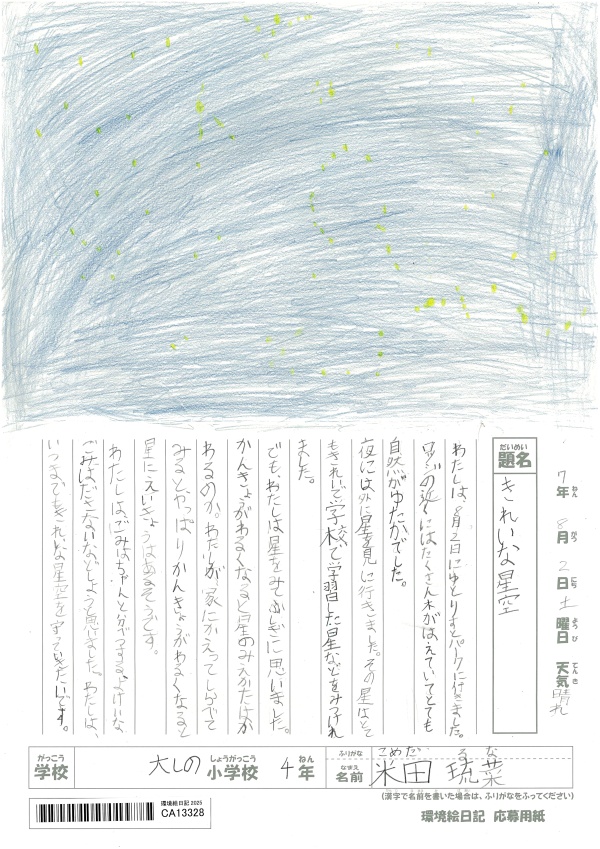 7年 8月 2日 土曜日 天気 晴れ
ねん がつ にち ようび てんき
だいめい
題名
きれいな星空
わたしは、8月2日にゆとりすとパークに行きました。
ロッジの近くにはたくさん木がはえていてとても
自然がゆたかでした。
夜には外に星を見に行きました。その星はとて
もきれいで学校で学習した星などをみつけれ
ました。
でも、わたしは星をみてふしぎに思いました。
かんきょうがわるくなると星のみえかたはか
わるのか。わたしが、家にかえってしらべて
みるとやっぱりかんきょうがわるくなると
星にえいきょうはあるそうです。
わたしは、ごみはちゃんと分べつする、よけいな
ごみはださないなどしようと思いました。わたしは、
いつまでもきれいな星空を守っていきたいです。
がっこう しょうがっこう ねん
学校 大しの 小学校 4年
ふりがな こめだ るな
なまえ
名前 米田 琉菜
(漢字で名前を書いた場合は、ふりがなをふってください)
環境絵日記 2025
CA13328
環境絵日記 応募用紙